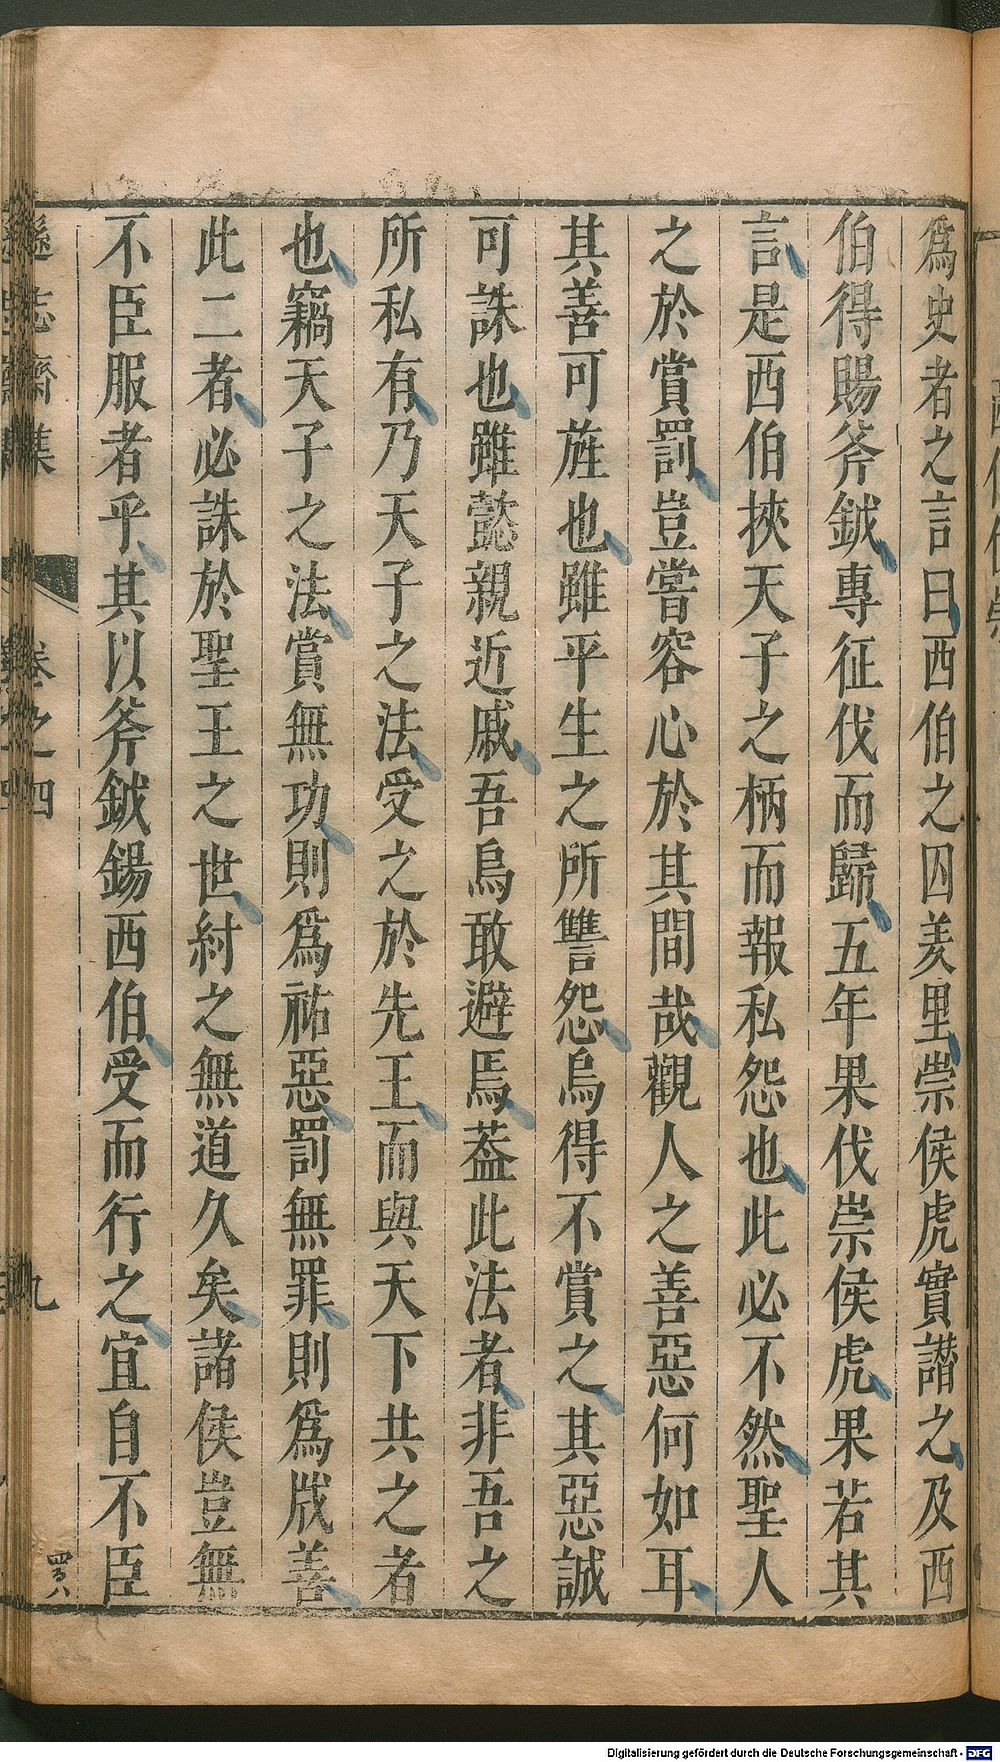 爲史者之言曰西伯之囚羑里崇侯虎實譖之及西
伯得賜斧鉞專征伐而歸五年果伐崇侯虎果若其
言是西伯挾天子之柄而報私怨也此必不然聖人
之於賞罰豈嘗容心於其間哉觀人之善惡何如耳
其善可旌也雖平生之所讐怨烏得不賞之其惡誠
可誅也雖懿親近戚吾烏敢避焉葢此法者非吾之
所私有乃天子之法受之於先王而與天下共之者
也竊天子之法賞無功則爲祐惡罰無罪則爲戕善
此二者必誅於聖王之世紂之無道久矣諸侯豈無
不臣服者乎其以斧鉞錫西伯受而行之宜自不臣
遜志齋集
卷之四
九
Digitalisierung gefördert durch die Deutsche Forschungsgemeinschaft - DFG